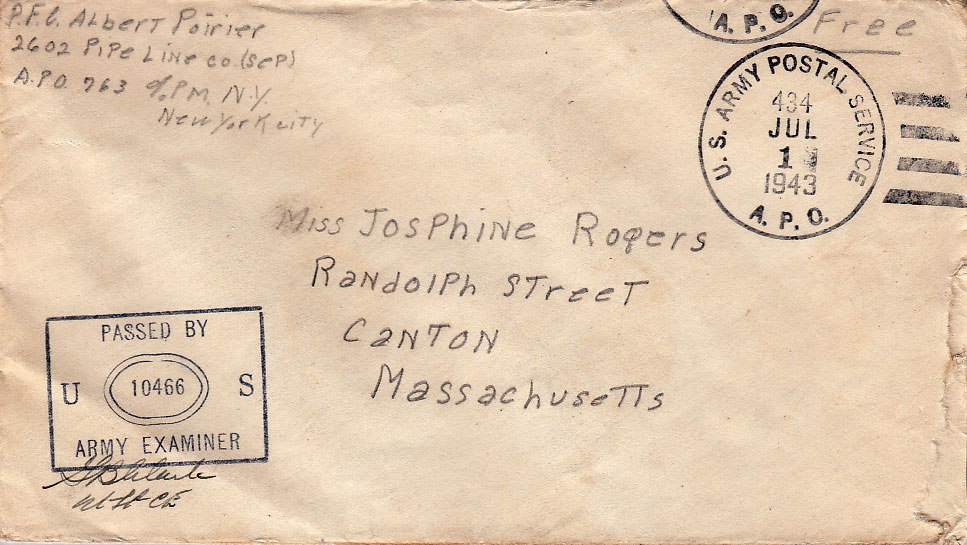 P.F.C. Albert Poirier
2602 PIPe LINe co. (SeP)
A.P.O. 763 c/o P.M. N.Y.
New York city
A.P.O.
Free
U.S. ARMY POSTAL SERVICE
434
JUL
1
1943
A.P.O.
Miss JosPhine Rogers
RandolPh STreeT
CanTon
MassachuseTTs
PASSED BY
U 10466 S
ARMY EXAMINER